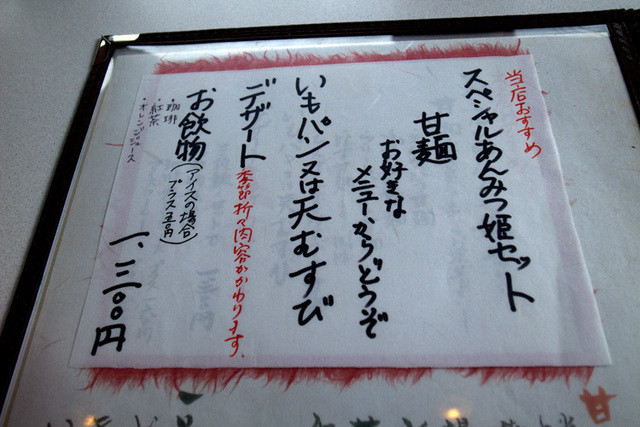 当店おすすめ
スペシャルあんみつ姫セット
甘麺
お好きな
メニューからどうぞ
いもパン又は天むすび
デザート 季節折々内容かわります.
お飲物 (アイスの場合
プラス五〇円)
・珈琲
・紅茶
・オレンジジュース
一、三〇〇円
甘